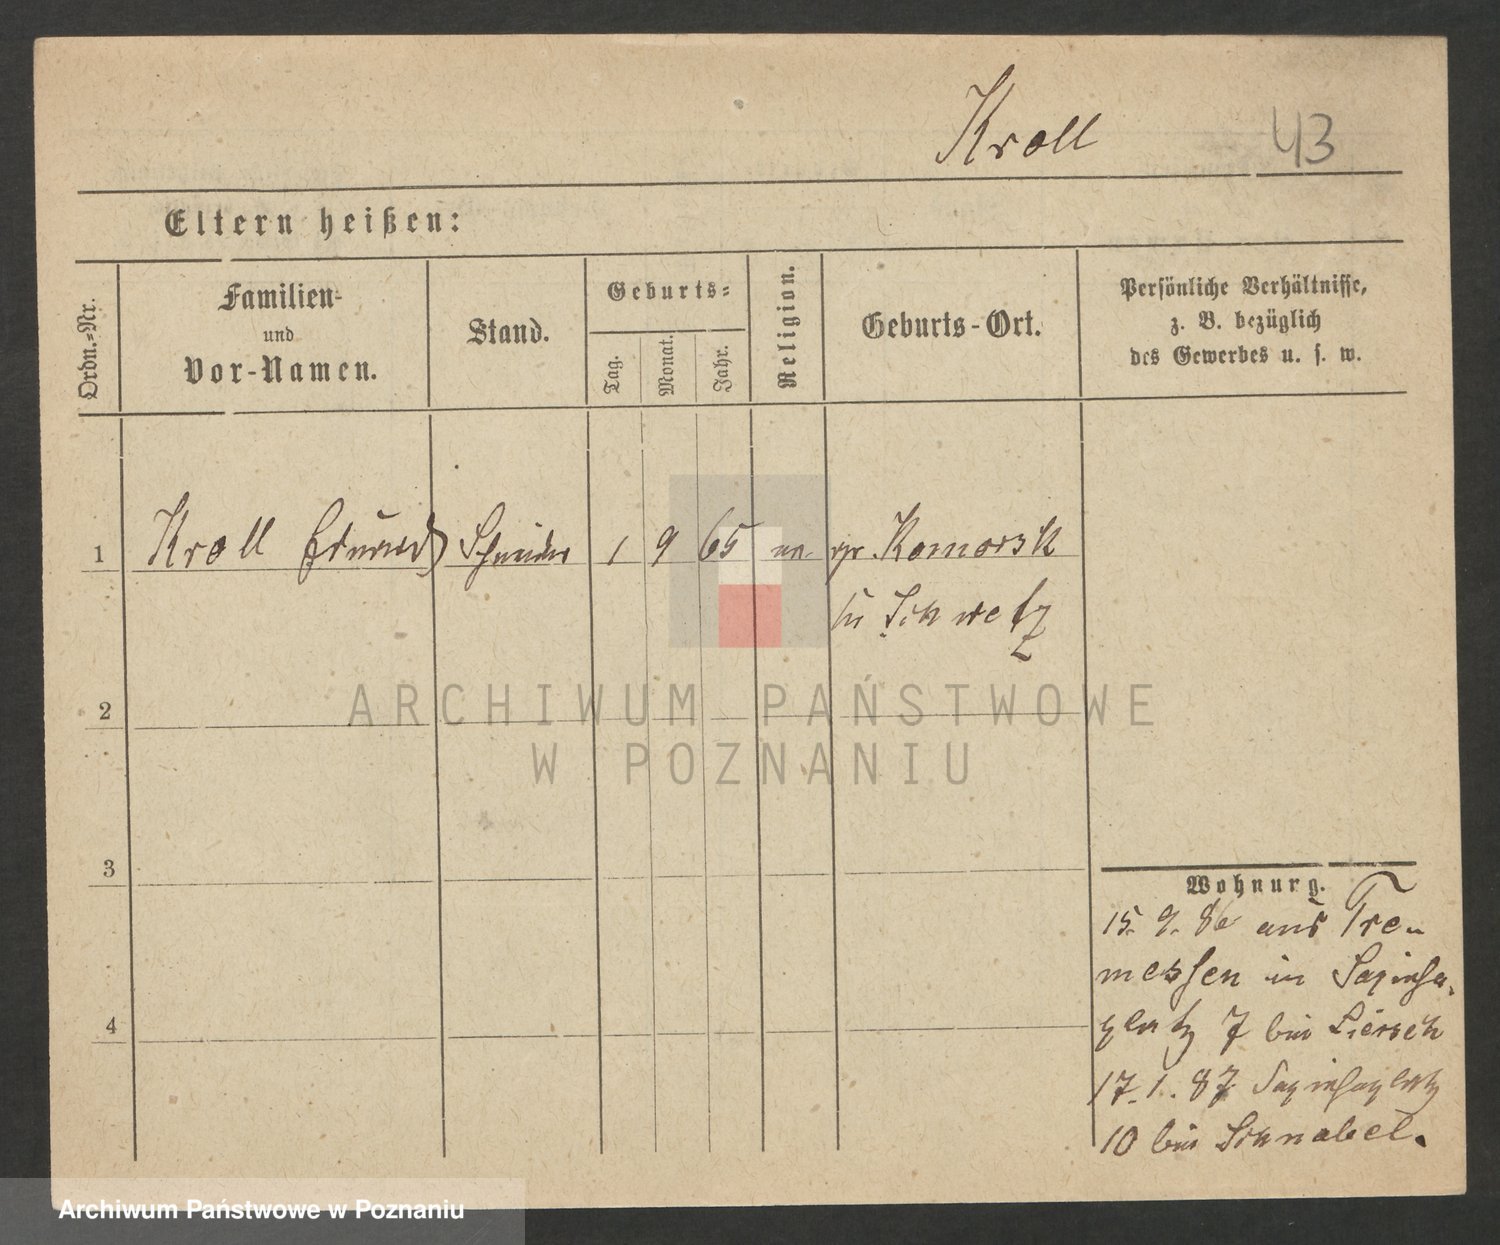 Kroll 43
Eltern heißen:
Ordn.-Nr.
Familien-
und
Vor-Namen.
Stand.
Geburts-
Tag.
Monat.
Jahr.
Religion.
Geburts-Ort.
Persönliche Verhältnisse,
z. B. bezüglich
des Gewerbes u. s. w.
1 Kroll Eduard Schneider 1 9 65 gr. Komorsk
Schwetz
2
ARCHIWUM PAŃSTWOWE
W POZNANIU
3
Wohnung.
15. 9. 86 aus Tre-
messen in Sapieha-
platz 7 bei Liersch
4
17. 1. 87 Sapiehaplatz
10 bei Schnabel.
Archiwum Państwowe w Poznaniu